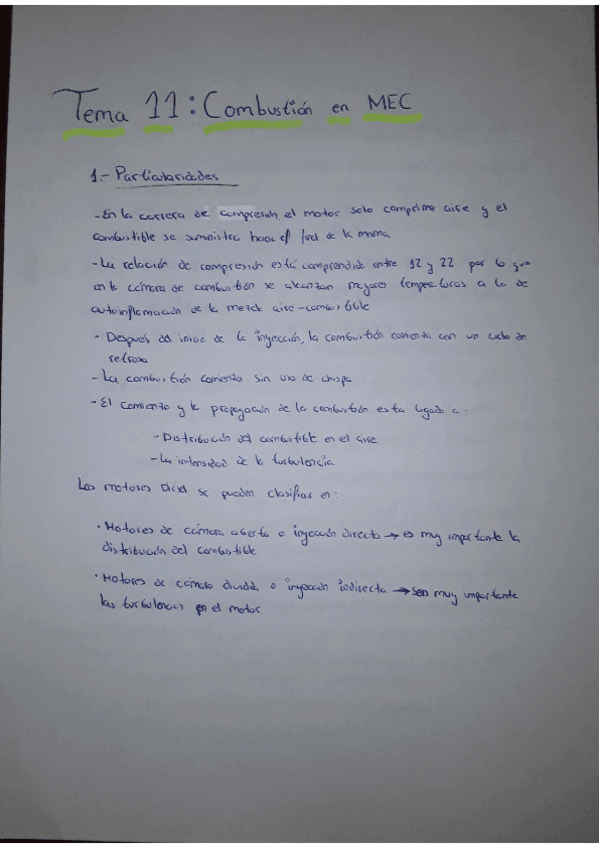 Tema 11: Combustión en MEC
1.- Particularidades
- En la carrera de compresión el motor solo comprime aire y el
combustible se suministra hacia el final de la misma
- La relación de compresión está comprendida entre 12 y 22 por lo que
en la cámara de combustión se alcanzan mayores temperaturas a la de
autoinflamación de la mezcla aire-combustible
- Después del inicio de la inyección, la combustión comienza con un ciclo de
retraso
- La combustión comienza sin uso de chispa
- El comienzo y la propagación de la combustión esta ligado a:
- Distribución del combustible en el aire
- La intensidad de la turbulencia
Los motores Diésel se pueden clasificar en:
· Motores de cámara abierta o inyección directa → es muy importante la
distribución del combustible
· Motores de cámara dividida o inyección indirecta → son muy importante
las turbulencias en el motor